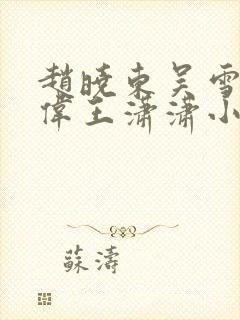 趙曉東吴雪
偉王瀟瀟小
蘇濤